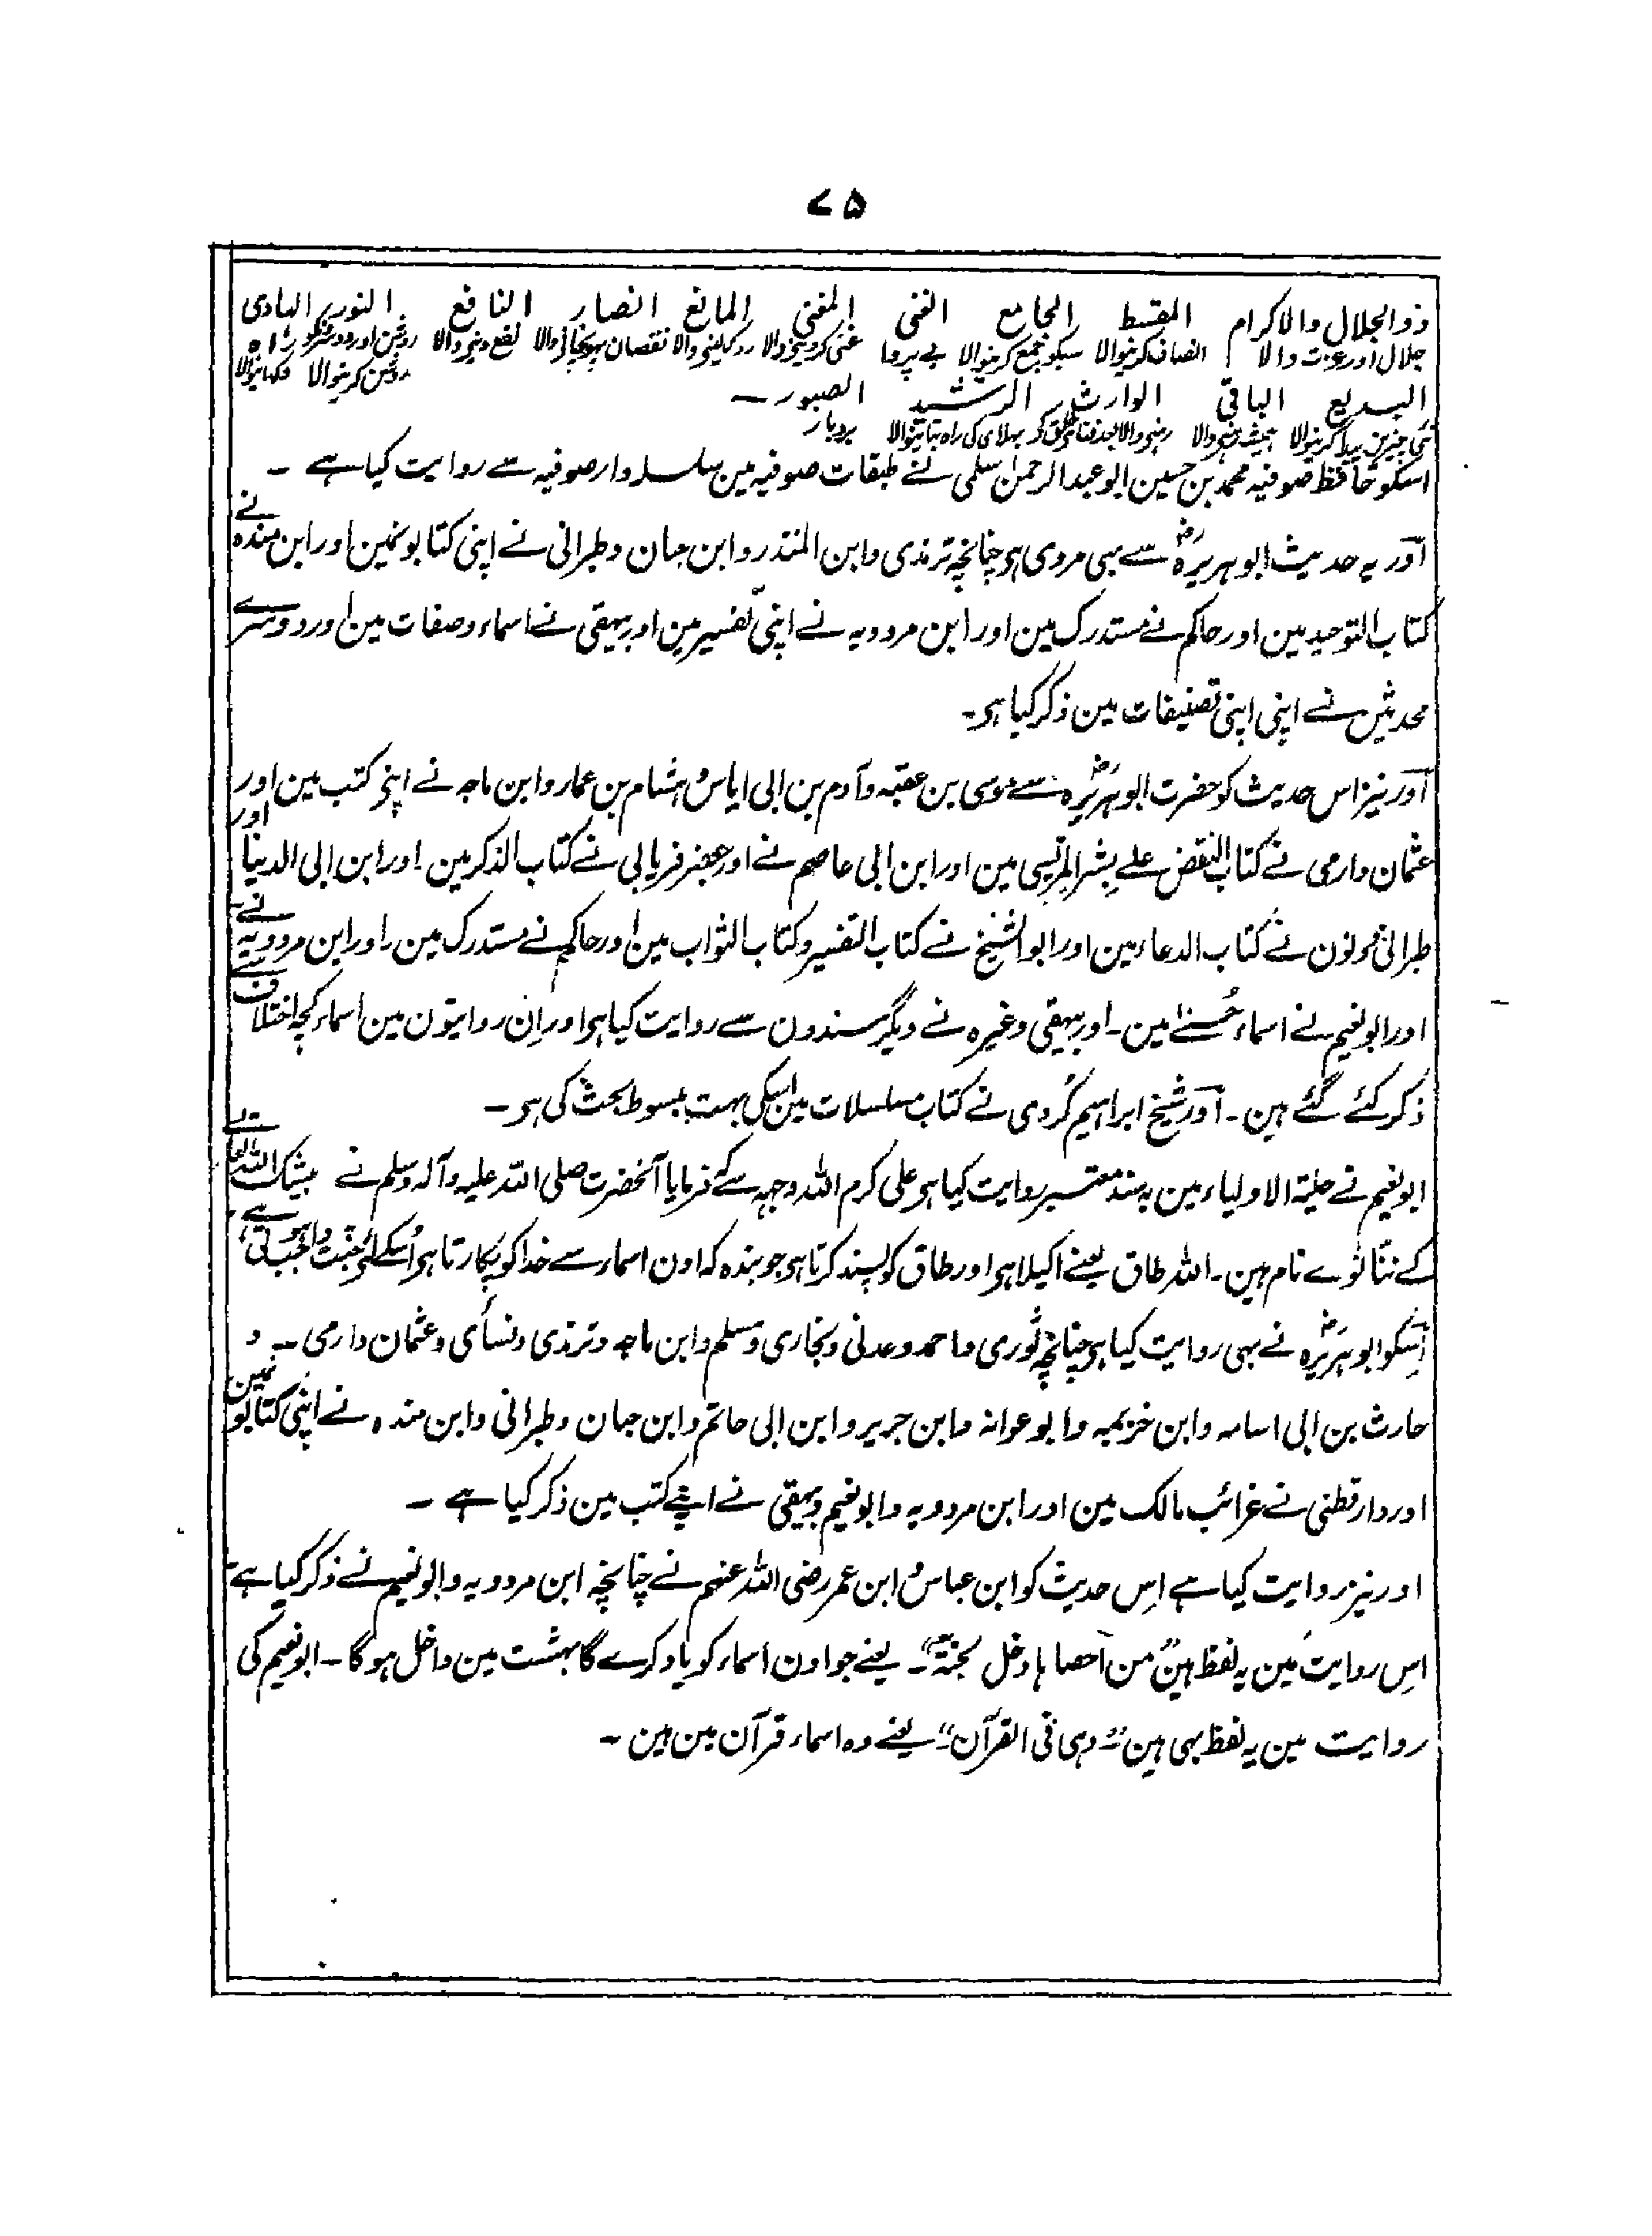 ۷۵
ذوالجلال والاکرام المقسط الجامع الغنی المغنی المانع الضار النافع النور الہادی
جلال اور عزت والا انصاف کرنیوالا سبکو جمع کرنیوالا بے پروا غنی کردینے والا روک لینے والا نقصان پہونچانے والا نفع دینے والا روشن اور دوسرونکو راہ
روشن کرنیوالا دکھانیوالا
البدیع الباقی الوارث الرشید الصبور ۔
نئی چیزین پیدا کرنیوالا ہمیشہ رہنے والا رہنے والا بعد فناے خلق کے بہلائی کی راہ بتانیوالا بردبار
اسکو حافظ صوفیہ محمد بن حسین ابو عبدالرحمن سلمی نے طبقات صوفیہ مین سلسلہ وار صوفیہ سے روایت کیا ہے ۔
آور یہ حدیث ابو ہریرہؓ سے بہی مروی ہو چنانچہ ترمذی وابن المنذر وابن حبان وطبرانی نے اپنی کتابونمین اور ابن مندہ نے
کتاب التوحید مین اور حاکم نے مستدرک مین اور ابن مردویہ نے اپنی تفسیر مین اور بیہقی نے اسماء وصفات مین اور دوسرے
محدثین نے اپنی اپنی تصنیفات مین ذکر کیا ہو۔
آور نیز اس حدیث کو حضرت ابو ہریرہؓ سے موسی بن عقبہ وآدم بن ابی ایاس وہشام بن عمار وابن ماجہ نے اپنی کتب مین اور
عثمان دارمی نے کتاب النقض علے بشر المریسی مین اور ابن ابی عاصم نے اور جعفر فریابی نے کتاب الذکر مین۔ اور ابن ابی الدنیا اور
طبرانی دونون نے کتاب الدعاء مین اور ابو الشیخ نے کتاب التفسیر وکتاب الثواب مین اور حاکم نے مستدرک مین۔ اور ابن مردویہ نے
اور ابو نعیم نے اسماء حُسنے مین۔ اور بیہقی وغیرہ نے دیگر سندون سے روایت کیا ہو اور اِن روایتون مین اسماء کچہ اختلاف سے
ذکر کئے گئے ہین۔ آور شیخ ابراہیم کُردی نے کتاب مسلسلات مین اسکی بہت مبسوط بحث کی ہو ۔
ابو نعیم نے حلیۃ الاولیاء مین بہ سند معتبر روایت کیا ہو علی کرم اللہ وجہہ سے کہ فرمایا آنحضرت صلی اللہ علیہ وآلہ وسلم نے بیشک اللہ تعالے
کے ننانوے نام ہین۔ اللہ طاق یعنے اکیلا ہو اور طاق کو پسند کرتا ہو جو بندہ کہ اون اسماء سے خدا کو پکارتا ہو اُسکے لئے جنت واجب ہو جاتی ہے
اُسکو ابو ہریرہؓ نے بہی روایت کیا ہو چنانچہ ثوری واحمد وعدنی وبخاری ومسلم وابن ماجہ وترمذی ونسائی وعثمان دارمی ۔ و
حارث بن ابی اسامہ وابن خزیمہ وابو عوانہ وابن جریر وابن ابی حاتم وابن حبان وطبرانی وابن مندہ نے اپنی کتابونمین
اور دارقطنی نے غرائب مالک مین اور ابن مردویہ وابو نعیم وبیہقی نے اپنے کتب مین ذکر کیا ہے ۔
اور نیز روایت کیا ہے اِس حدیث کو ابن عباس وابن عمر رضی اللہ عنہم نے چنانچہ ابن مردویہ وابو نعیم نے ذکر کیا ہے
اِس روایت مین یہ لفظ ہین "من احصاہا دخل لجنۃ"۔ یعنے جو اون اسماء کو یاد کرے گا بہشت مین داخل ہوگا۔ ابو نعیم کی
روایت مین یہ لفظ بہی ہین "وہی فی القرآن" یعنے وہ اسماء قرآن مین ہین ۔